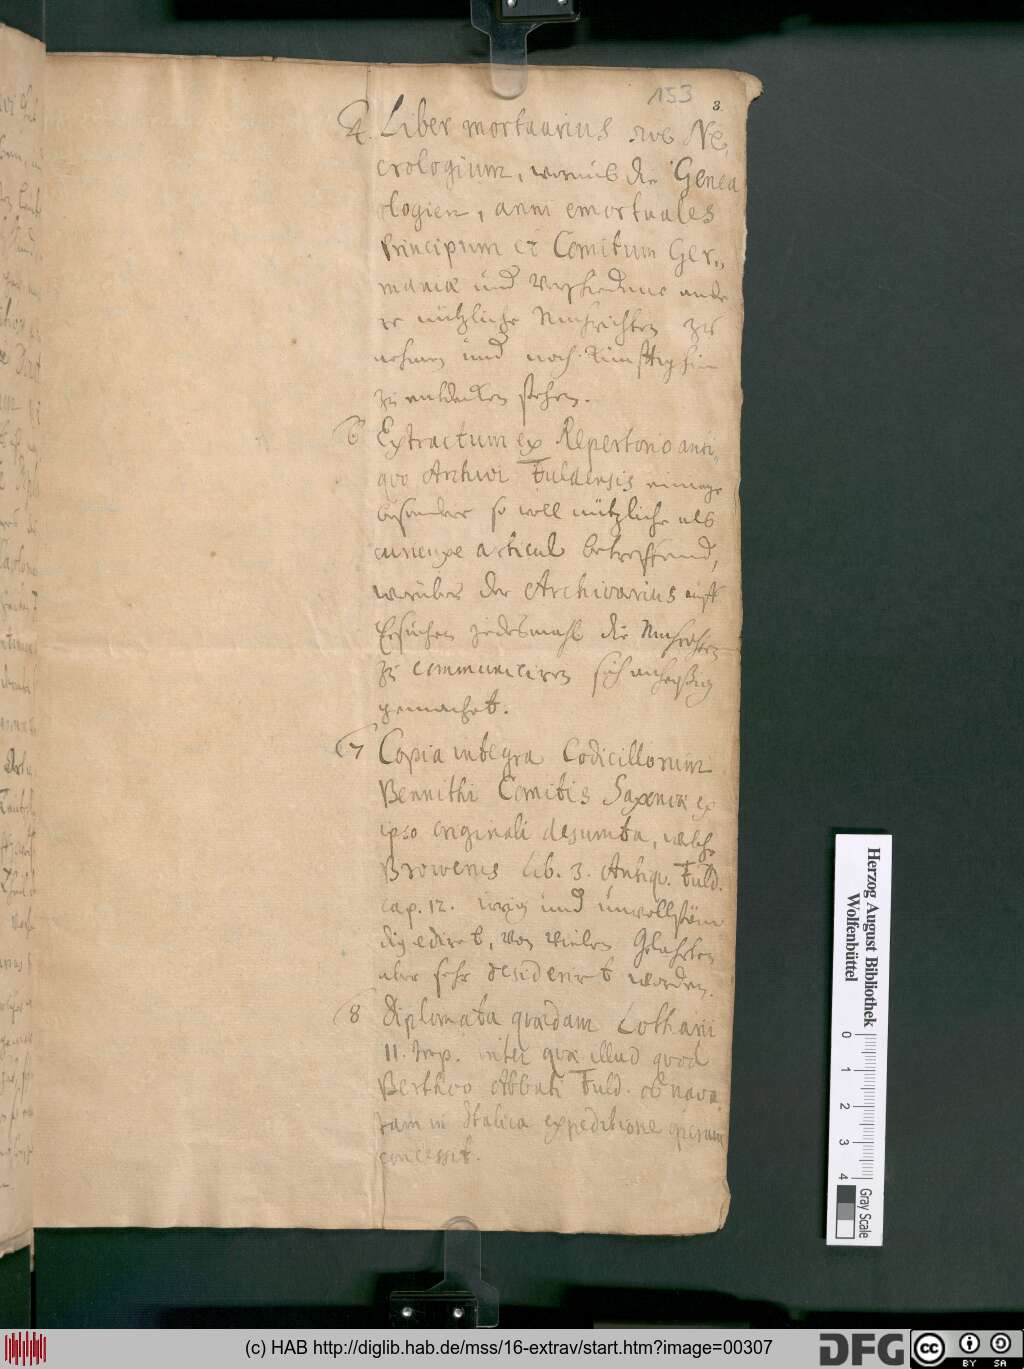 153
3.
4. Liber mortuarius sive Ne,
crologium, woraus die Genea
logien, anni emortuales
Principum et Comitum Ger,,
maniæ und Verschiedene ande
re nützliche Nachrichten zu
nehmen und noch künfftighin
zu entdecken stehen.
6 Extractum ex Repertorio anti,
quo Archivi Fuldensis einige
besondere so woll nützliche als
curieuse articul betreffend,
worüber der Archivarius auff
Ersuchen jedesmahl die Nachrichten
zu communiciren sich anheischig
gemachet.
7 Copia integra Codicillorum
Bennithi Comitis Saxoniæ ex
ipso originali desumta, welche
Browerus lib. 3. Antiqu. Fuld.
cap. 12. irrig und unvollstän
dig ediret, von vielen Gelahrten
aber sehr desideriret worden.
8 Diplomata quædam Lotharii
II. Imp. inter quæ illud quod
Berthoo Abbati Fuld. ob nava
tam in Italica expeditione operam
concessit.
Herzog August Bibliothek
Wolfenbüttel
0
1
2
3
4
Gray Scale
(c) HAB http://diglib.hab.de/mss/16-extrav/start.htm?image=00307
DFG
cc
BY SA